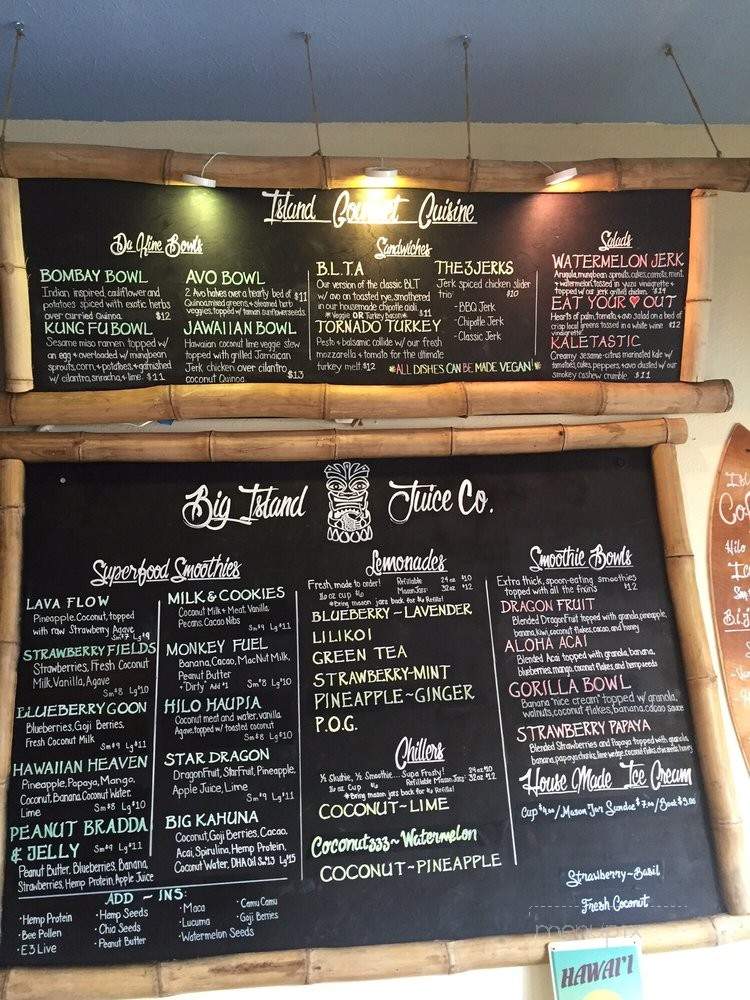 Island Gourmet Cuisine
Da Kine Bowls
BOMBAY BOWL
Indian inspired, cauliflower and
potatoes spiced with exotic herbs
over curried Quinoa. $12
KUNG FU BOWL
Sesame miso ramen topped w/
an egg + overloaded w/ mungbean
sprouts, corn, + potatoes, + garnished
w/ cilantro, sriracha, + lime. $11
AVO BOWL
2 Avo halves over a hearty bed of $11
Quinoa, mixed greens, + steamed herb
veggies, topped w/ tamari sunflower seeds.
JAWAIIAN BOWL
Hawaiian coconut lime veggie stew
topped with grilled Jamaican
Jerk chicken over cilantro
coconut Quinoa. $13
Sandwiches
B.L.T.A
Our version of the classic BLT
w/ avo on toasted rye, smothered
in our housemade chipotle aioli.
*Veggie OR Turkey bacon* $11
TORNADO TURKEY
Pesto + balsamic collide w/ our fresh
mozzarella + tomato for the ultimate
turkey melt. $12
THE 3 JERKS
Jerk spiced chicken slider
trio $10
-BBQ Jerk
-Chipotle Jerk
-Classic Jerk
*ALL DISHES CAN BE MADE VEGAN!*
Salads
WATERMELON JERK
Arugula, mungbean sprouts, cukes, carrots, mint,
+ watermelon, tossed in yuzu vinaigrette +
topped w/ our jerk grilled chicken.
EAT YOUR ♥ OUT
Hearts of palm, tomato + avo salad on a bed of
crisp local greens tossed in a white wine $12
vinaigrette.
KALETASTIC
Creamy sesame-citrus marinated kale w/
tomatoes, cukes, peppers, + avo dusted w/ our
smokey cashew crumble. $11
Big Island Juice Co.
Superfood Smoothies
LAVA FLOW
Pineapple, Coconut, topped
with raw Strawberry Agave
Sm $7 Lg $9
STRAWBERRY FIELDS
Strawberries, Fresh Coconut
Milk, Vanilla, Agave
Sm $8 Lg $10
BLUEBERRY GOON
Blueberries, Goji Berries,
Fresh Coconut Milk
Sm $9 Lg $11
HAWAIIAN HEAVEN
Pineapple, Papaya, Mango,
Coconut, Banana, Coconut Water,
Lime Sm $8 Lg $10
PEANUT BRADDA
& JELLY Sm $9 Lg $11
Peanut Butter, Blueberries, Banana,
Strawberries, Hemp Protein, Apple Juice
MILK & COOKIES
Coconut Milk + Meat, Vanilla,
Pecans, Cacao Nibs
Sm $9 Lg $11
MONKEY FUEL
Banana, Cacao, MacNut Milk,
Peanut Butter
+"Dirty" Add $1 Sm $8 Lg $10
HILO HAUPIA
Coconut meat and water, vanilla,
Agave, topped w/ toasted coconut
Sm $8 Lg $10
STAR DRAGON
DragonFruit, StarFruit, Pineapple,
Apple Juice, Lime
Sm $9 Lg $11
BIG KAHUNA
Coconut, Goji Berries, Cacao,
Acai, Spirulina, Hemp Protein,
Coconut Water, DHA Oil Sm $13 Lg $15
ADD ~ INS:
•Hemp Protein
•Bee Pollen
•E3 Live
•Hemp Seeds
•Chia Seeds
•Peanut Butter
•Maca
•Lucuma
•Watermelon Seeds
•Camu Camu
•Goji Berries
Lemonades
Fresh, made to order! Refillable 24 oz $10
16 oz cup $6 Mason Jars: 32 oz $12
*Bring mason jars back for $6 Refills!
BLUEBERRY~LAVENDER
LILIKOI
GREEN TEA
STRAWBERRY~MINT
PINEAPPLE~GINGER
P.O.G.
Chillers
½ Slushie, ½ Smoothie.... Supa Frosty! 24 oz $10
16 oz Cup $6 Refillable Mason Jars: 32 oz $12
*Bring mason jars back for $6 Refills!
COCONUT~LIME
Coconutzzz~Watermelon
COCONUT~PINEAPPLE
Smoothie Bowls
Extra thick, spoon-eating smoothies
topped with all the fixin's $12
DRAGON FRUIT
Blended DragonFruit topped with granola, pineapple,
banana, kiwi, coconut flakes, cacao, and honey
ALOHA ACAI
Blended Acai topped with granola, banana,
blueberries, mango, coconut flakes, and hemp seeds
GORILLA BOWL
Banana "nice cream" topped w/ granola,
walnuts, coconut flakes, banana, cacao sauce
STRAWBERRY PAPAYA
Blended Strawberries and Papaya topped with granola,
banana, papaya chunks, lime wedge, coconut flakes, chia seeds, honey
House Made Ice Cream
Cup $4.00 / Mason Jar Sundae $7.00 / Boat $9.00
Strawberry~Basil
Fresh Coconut
menupix
HAWAI'I
Hilo